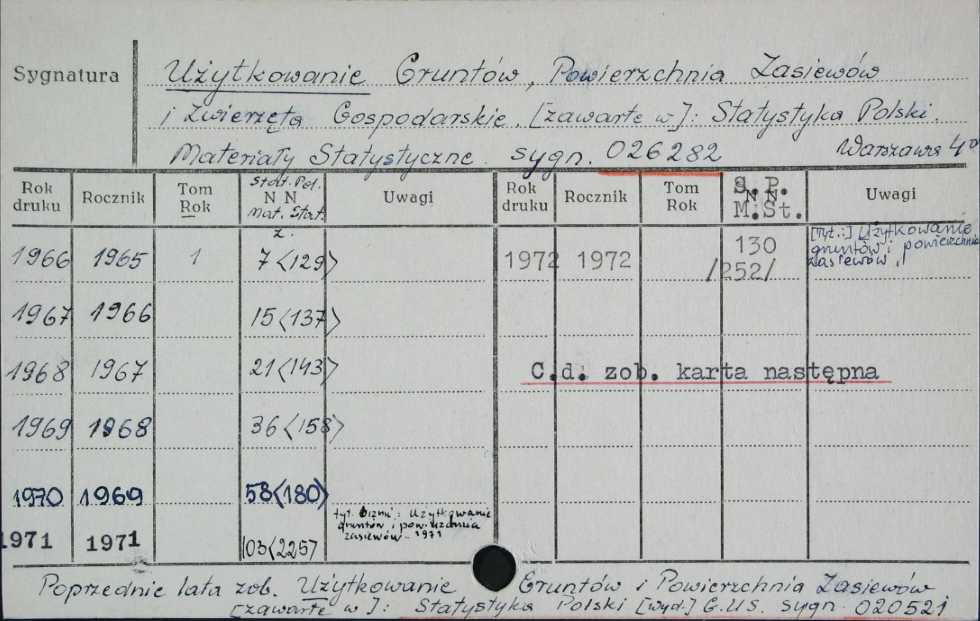 Sygnatura
Użytkowanie Gruntów, Powierzchnia Zasiewów
i Zwierzęta Gospodarskie. [zawarte w]: Statystyka Polski.
Materiały Statystyczne. sygn. 026282 Warszawa 4°
Rok druku Rocznik Tom Rok Stat. Pol. N N Mat. Stat. Uwagi Rok druku Rocznik Tom Rok S. P. N N M.St. Uwagi
z.
1966 1965 1 7<129> 1972 1972 130 /252/ [Tyt.:] Użytkowanie gruntów i powierzchnia zasiewów.
1967 1966 15<137>
1968 1967 21<143> C.d. zob. karta następna
1969 1968 36<158>
1970 1969 58<180>
1971 1971 103<225> tyt. brzmi: Użytkowanie gruntów i powierzchnia zasiewów - 1971
Poprzednie lata zob. Użytkowanie Gruntów i Powierzchnia Zasiewów
[zawarte w]: Statystyka Polski [wyd.] G.U.S. sygn. 020521